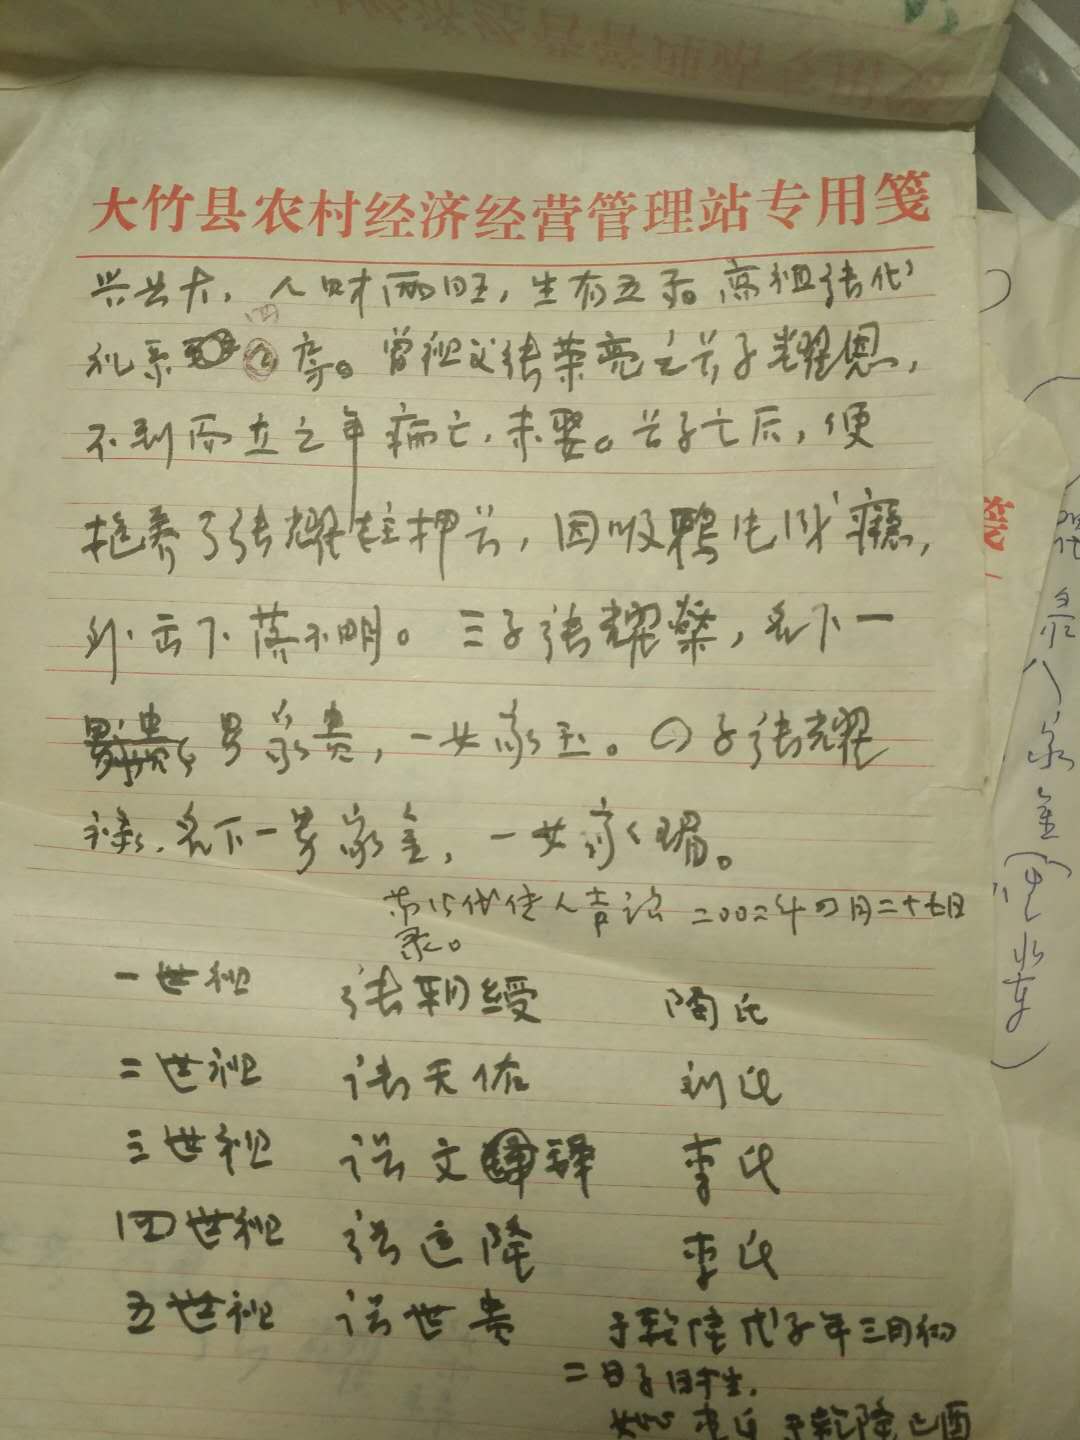 大竹县农村经济经营管理站专用笺
兴器大，人财两旺，生有五子。高祖张化
礼系 四 房。曾祖父张荣亮之长子耀恩，
不到而立之年病亡，未娶。长子亡后，便
抱养了张耀 押长，因吸鸦片成瘾，
外出下落不明。三子张耀荣，名下一
男家贵，一女家玉。四子张耀
禄，名下一男家金，一女家瑁。
第 代传人 二00二年四月二十七日
录。
一世祖 张朝绶 陶氏
二世祖 张天佑 刘氏
三世祖 张文 李氏
四世祖 张运隆 李氏
五世祖 张世贵 于乾隆戊子年三月初
二日子时生，
于乾隆己酉